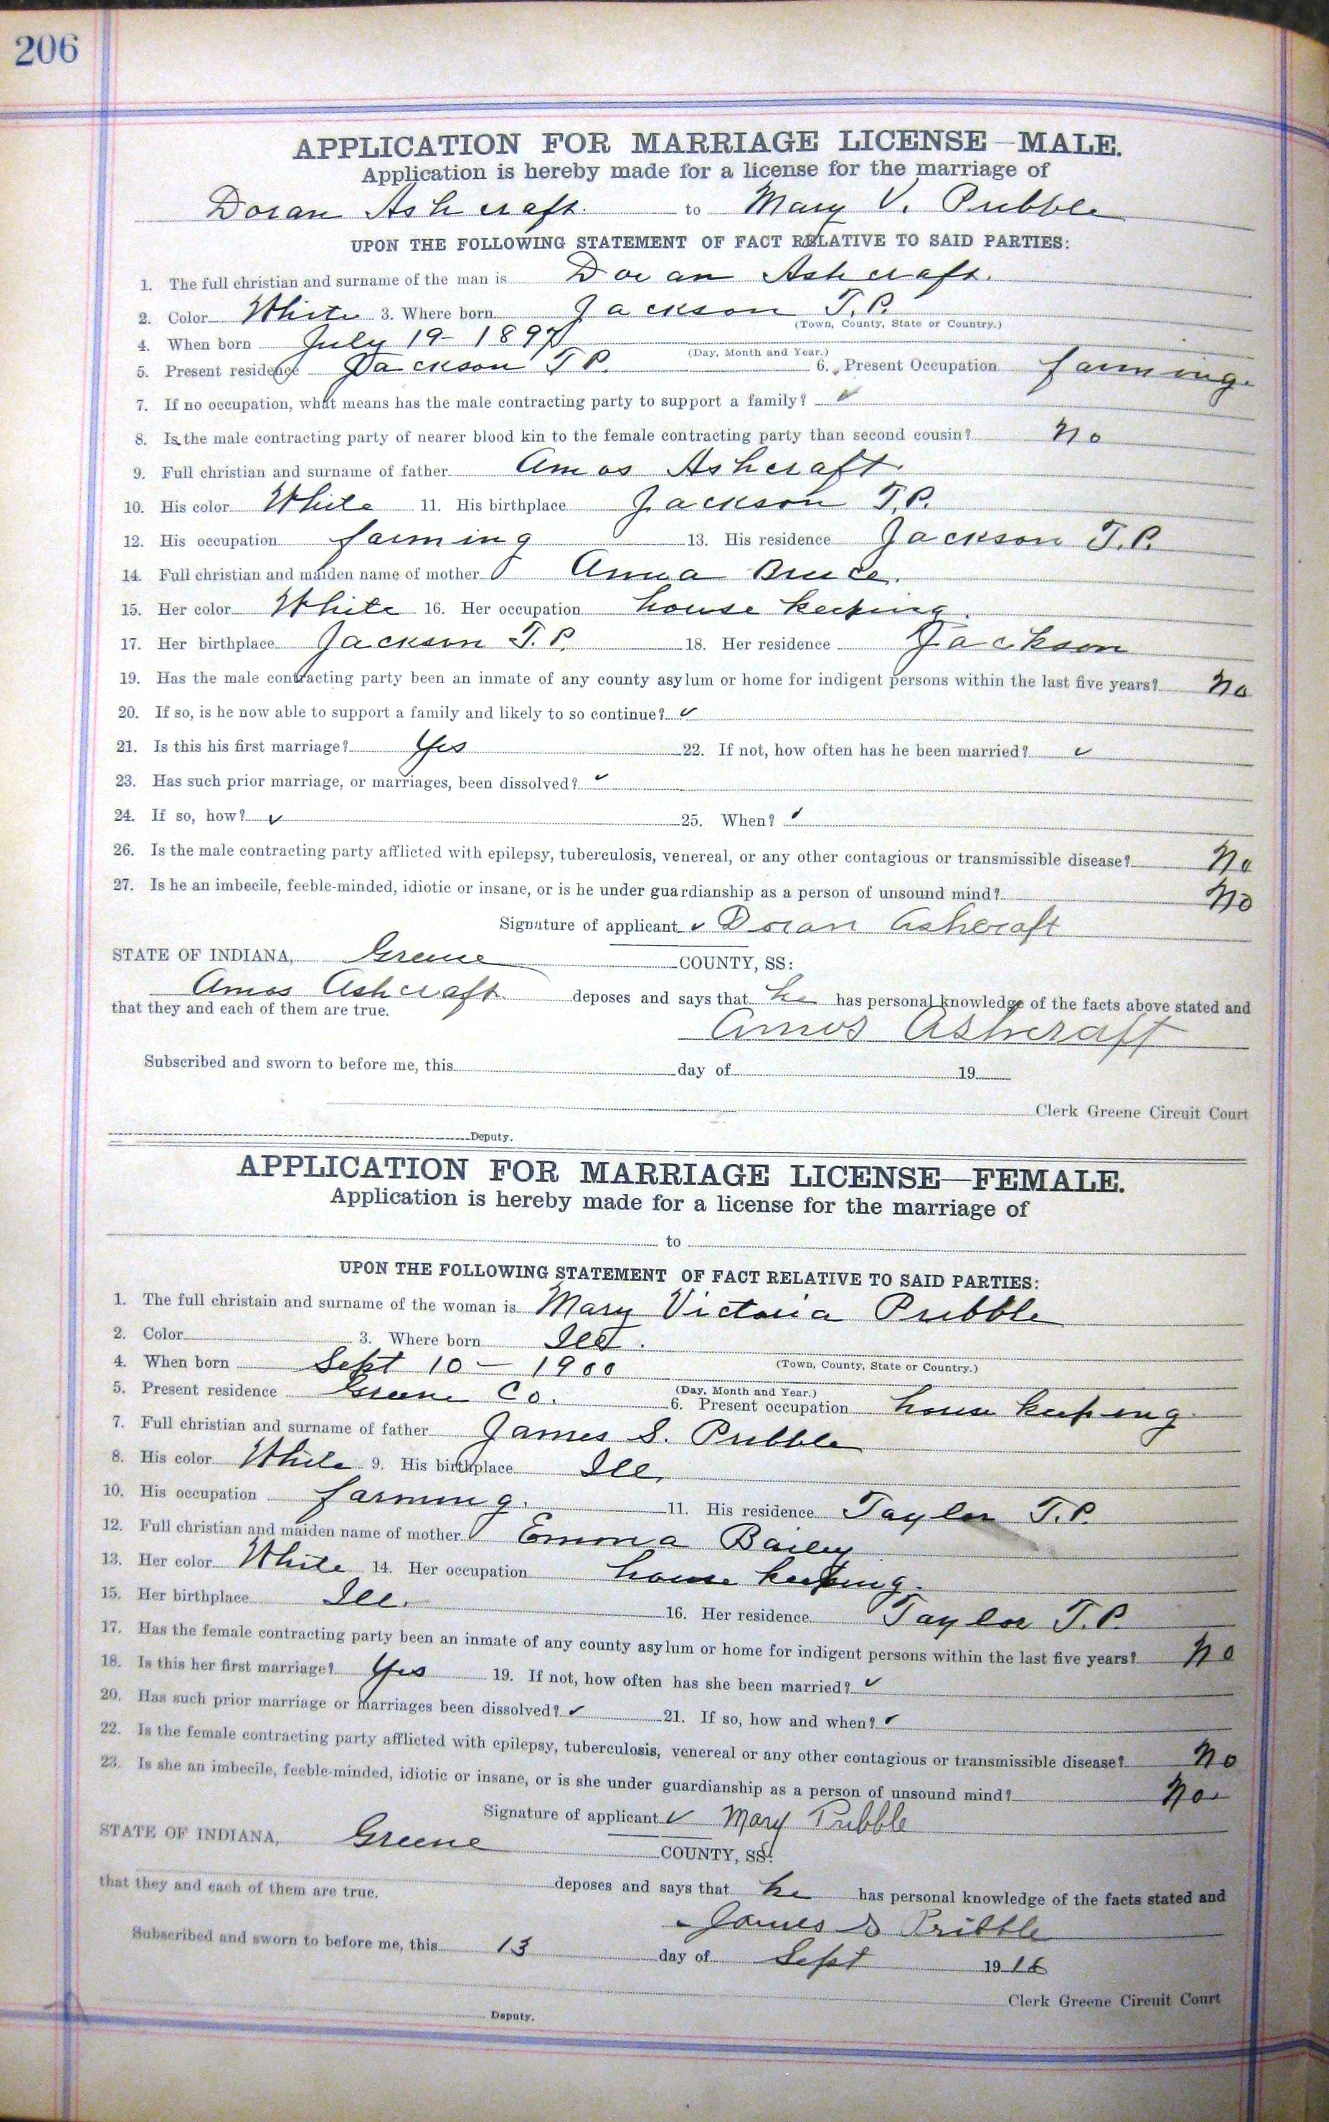 206
APPLICATION FOR MARRIAGE LICENSE—MALE.
Application is hereby made for a license for the marriage of
Doran Ashcraft. to Mary V. Pribble
UPON THE FOLLOWING STATEMENT OF FACT RELATIVE TO SAID PARTIES:
1. The full christian and surname of the man is Doran Ashcraft.
2. Color White 3. Where born Jackson T.P.
(Town, County, State or Country.)
4. When born July 19 - 1897
(Day, Month and Year.)
5. Present residence Jackson T P. 6. Present Occupation farming.
7. If no occupation, what means has the male contracting party to support a family? ✓
8. Is the male contracting party of nearer blood kin to the female contracting party than second cousin? No
9. Full christian and surname of father Amos Ashcraft.
10. His color White 11. His birthplace Jackson T.P.
12. His occupation farming 13. His residence Jackson T.P.
14. Full christian and maiden name of mother Anna Bruce.
15. Her color White 16. Her occupation house keeping.
17. Her birthplace Jackson T.P. 18. Her residence Jackson
19. Has the male contracting party been an inmate of any county asylum or home for indigent persons within the last five years? No
20. If so, is he now able to support a family and likely to so continue? ✓
21. Is this his first marriage? Yes 22. If not, how often has he been married? ✓
23. Has such prior marriage, or marriages, been dissolved? ✓
24. If so, how? ✓ 25. When? ✓
26. Is the male contracting party afflicted with epilepsy, tuberculosis, venereal, or any other contagious or transmissible disease? No
27. Is he an imbecile, feeble-minded, idiotic or insane, or is he under guardianship as a person of unsound mind? No
Signature of applicant ✓ Doran Ashcraft
STATE OF INDIANA, Greene COUNTY, SS:
Amos Ashcraft. deposes and says that he has personal knowledge of the facts above stated and
that they and each of them are true.
Amos Ashcraft
Subscribed and sworn to before me, this day of 19
Clerk Greene Circuit Court
Deputy.
APPLICATION FOR MARRIAGE LICENSE—FEMALE.
Application is hereby made for a license for the marriage of
to
UPON THE FOLLOWING STATEMENT OF FACT RELATIVE TO SAID PARTIES:
1. The full christain and surname of the woman is Mary Victoria Pribble
2. Color 3. Where born Ill.
(Town, County, State or Country.)
4. When born Sept 10 - 1900
(Day, Month and Year.)
5. Present residence Greene Co. 6. Present occupation house keeping.
7. Full christian and surname of father James S. Pribble
8. His color White 9. His birthplace Ill.
10. His occupation farming. 11. His residence Taylor T.P.
12. Full christian and maiden name of mother Emma Bailey
13. Her color White 14. Her occupation house keeping.
15. Her birthplace Ill. 16. Her residence Taylor T.P.
17. Has the female contracting party been an inmate of any county asylum or home for indigent persons within the last five years? No
18. Is this her first marriage? Yes 19. If not, how often has she been married? ✓
20. Has such prior marriage or marriages been dissolved? ✓ 21. If so, how and when? ✓
22. Is the female contracting party afflicted with epilepsy, tuberculosis, venereal or any other contagious or transmissible disease? No
23. Is she an imbecile, feeble-minded, idiotic or insane, or is she under guardianship as a person of unsound mind? No
Signature of applicant ✓ Mary Pribble
STATE OF INDIANA, Greene COUNTY, SS:
deposes and says that he has personal knowledge of the facts stated and
that they and each of them are true.
James S Pribble
Subscribed and sworn to before me, this 13 day of Sept 19
Clerk Greene Circuit Court
Deputy.